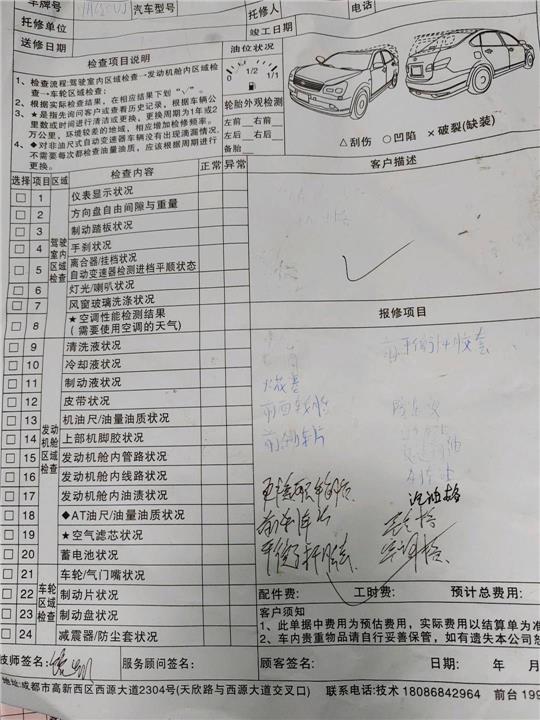 车牌号
汽车型号
托修人
电话
托修单位
竣工日期
送修日期
检查项目说明
1、检查流程:驾驶室内区域检查→发动机舱内区域检
查→车轮区域检查;
2、根据实际检查结果，在相应结果下划“√”。
3、★是指先询问客户或查看历史记录，根据车辆公
里数或时间进行清洁或更换，更换周期为1年或2
万公里，环境较差的地域，相应增加检修频率。
4、◆对非油尺式自动变速器车辆没有出现滴漏情况，
不需要每次都检查油量油质，应该根据周期进行
更换。
油位状况
0 1/2 1/1
轮胎外观检测
左前 右前
左后 右后
备胎
△刮伤 ○凹陷 ×破裂(缺装)
选择 项目 区域 检查内容 正常 异常
客户描述
驾驶室内区域检查
1 仪表显示状况
2 方向盘自由间隙与重量
3 制动踏板状况
4 手刹状况
5 离合器/挂档状况
自动变速器检测进档平顺状态
6 灯光/喇叭状况
7 风窗玻璃洗涤状况
8 ★空调性能检测结果
(需要使用空调的天气)
报修项目
发动机舱区域检查
9 清洗液状况
10 冷却液状况
11 制动液状况
12 皮带状况
13 机油尺/油量油质状况
14 上部机脚胶状况
15 发动机舱内管路状况
16 发动机舱内线路状况
17 发动机舱内油渍状况
18 ◆AT油尺/油量油质状况
19 ★空气滤芯状况
20 蓄电池状况
车轮区域检查
21 车轮/气门嘴状况
22 制动片状况
23 制动盘状况
24 减震器/防尘套状况
配件费: 工时费: 预计总费用:
客户须知
1、此单据中费用为预估费用，实际费用以结算单为准
2、车内贵重物品请自行妥善保管，如有遗失本公司恕
技师签名:
服务顾问签名:
顾客签名:
日期: 年 月
地址:成都市高新西区西源大道2304号(天欣路与西源大道交叉口) 联系电话:技术 18086842964 前台 199